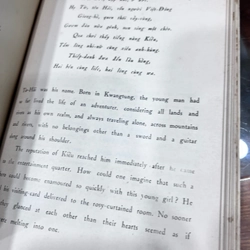 Họ Từ, tên Hải, vốn người Việt-Đông
Giang-hồ, quen thói vẫy-vùng,
Gươm đàn nửa gánh, non sông một chèo.
Qua chơi thấy tiếng nàng Kiều,
Tấm lòng nhi-nữ cũng xiêu anh-hùng.
Thiếp-danh đưa đến lầu hồng,
Hai bên cùng liếc, hai lòng cùng ưa.
Từ-Hải was his name. Born in Kwangtung, the young man had
so far lived the life of an adventurer, considering all lands and
as his own realm, and always traveling alone, across mountains
and rivers, with no belongings other than a sword and a guitar
around his shoulder.
The reputation of Kiều reached him immediately after he
the entertainment quarter. How could one imagine that such a
could become enamoured so quickly with this young girl? He
his visiting-card delivered to the rosy-curtained room. No sooner
they glanced at each other than their hearts seemed as if
melting into one.